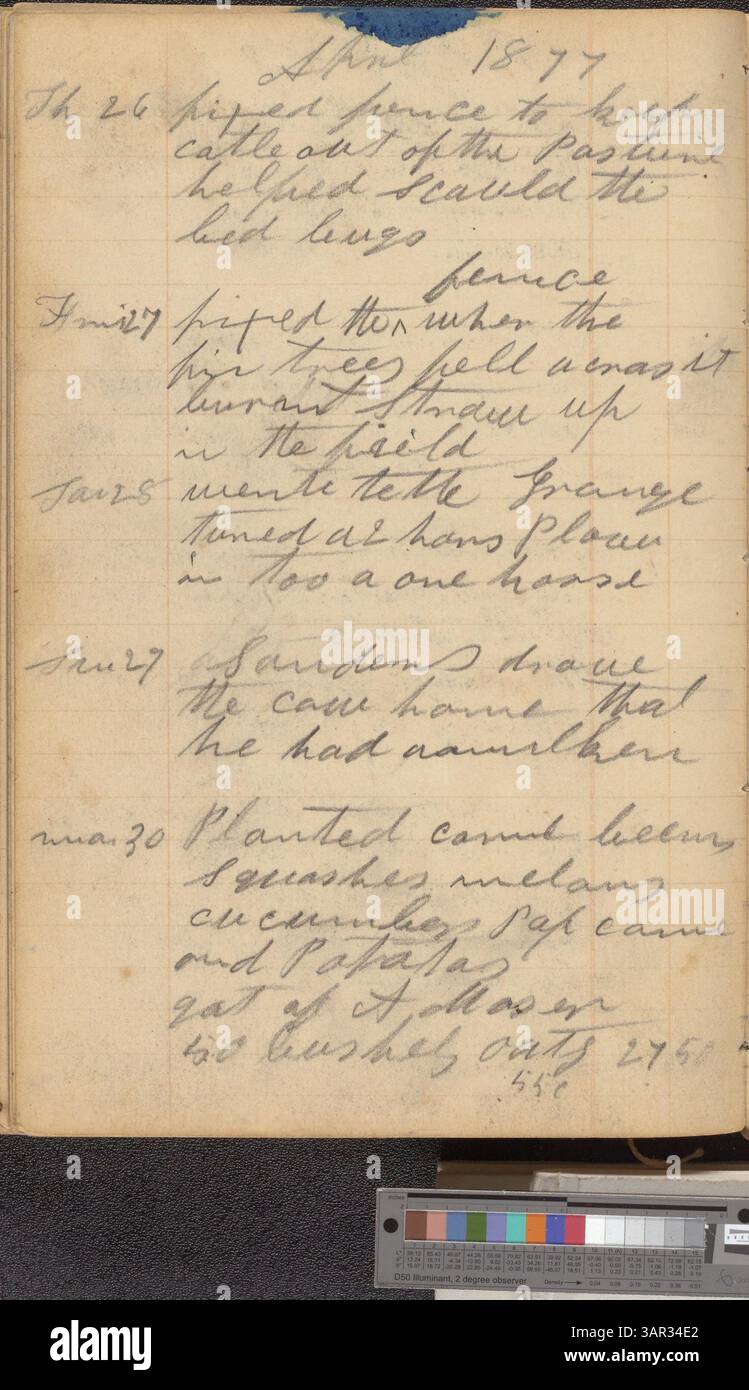 April 1877
Th 26 fixed fence to keep
catle out of the Pasture
helped scauld the
bed bugs
fence
Fri 27 fixed the ^ wher the
fir trees fell acras it
burnt Straw up
in the field
Sat 28 wente to the Grange
turned a 2 hors Plow
in too a one horse
Sun 29 Sanders drove
the cow home that
he had a milken
mon 30 Planted corn beens
squashes melons
cucumbers Pop corn
and Potatos
got of A Moser
50 bushels oats 27 50
55c
inches
D50 Illuminant, 2 degree observer
Density
alamy
Image ID: 3AR34E2
www.alamy.com